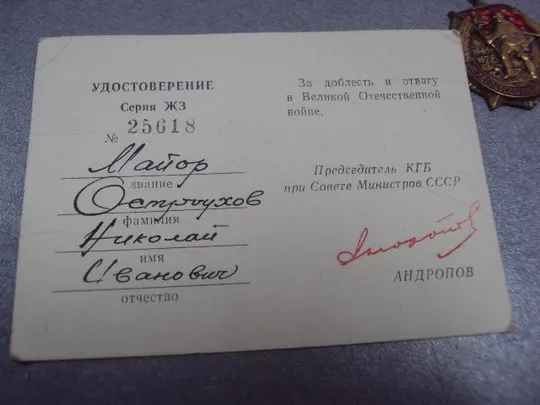 УДОСТОВЕРЕНИЕ
Серия ЖЗ
№ 25618
Майор
звание
Остроухов
фамилия
Николай
имя
Иванович
отчество
За доблесть и отвагу
в Великой Отечественной
войне.
Председатель КГБ
при Совете Министров СССР
АНДРОПОВ